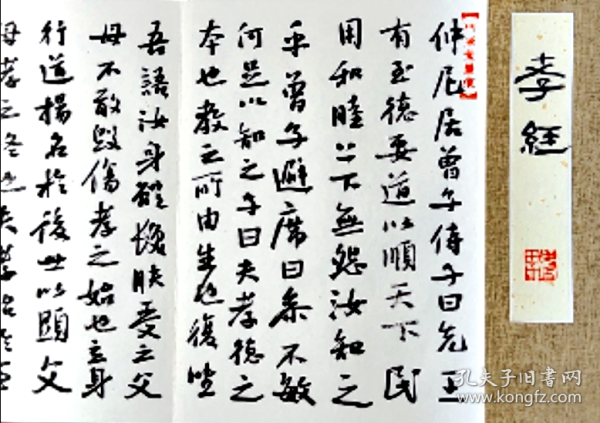 孝経
仲尼居曾子侍子曰先王
有至德要道以順天下民
用和睦上下無怨汝知之
乎曾子避席曰参不敏
何足以知之子曰夫孝德之
本也教之所由生也復坐
吾語汝身體髮膚受之父
母不敢毀傷孝之始也立身
行道揚名於後世以顯父
母孝之冬也夫孝始於
孔夫子旧书网
www.kongfz.com